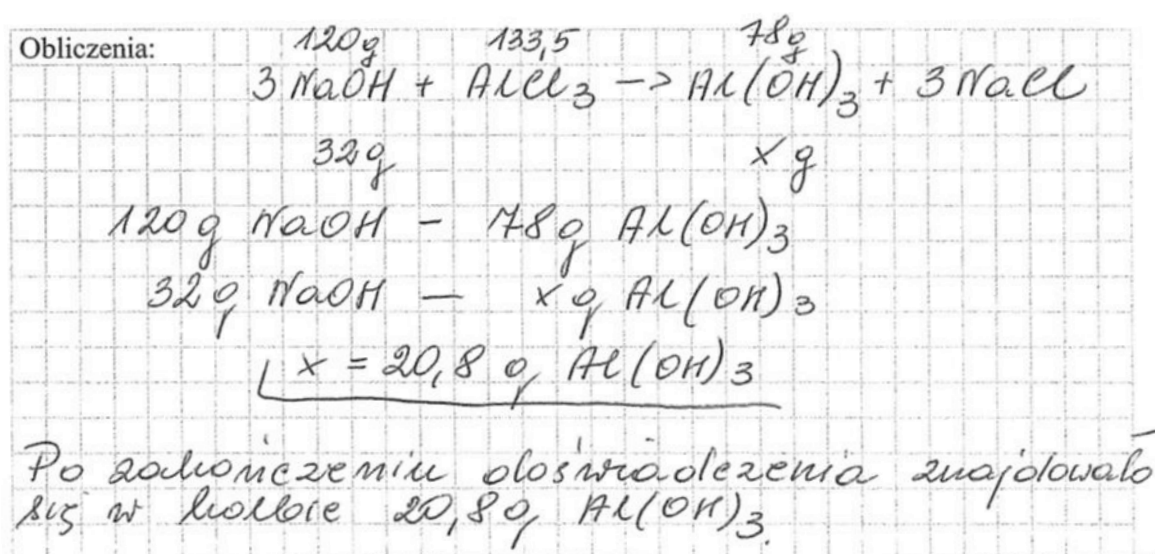 Obliczenia:
120g 133,5 78g
3 NaOH + AlCl₃ -> Al(OH)₃ + 3 NaCl
32g x g
120 g NaOH - 78g Al(OH)₃
32g NaOH - x g Al(OH)₃
x = 20,8 g Al(OH)₃
Po zakończeniu doświadczenia znajdowało
się w kolbie 20,8g Al(OH)₃.